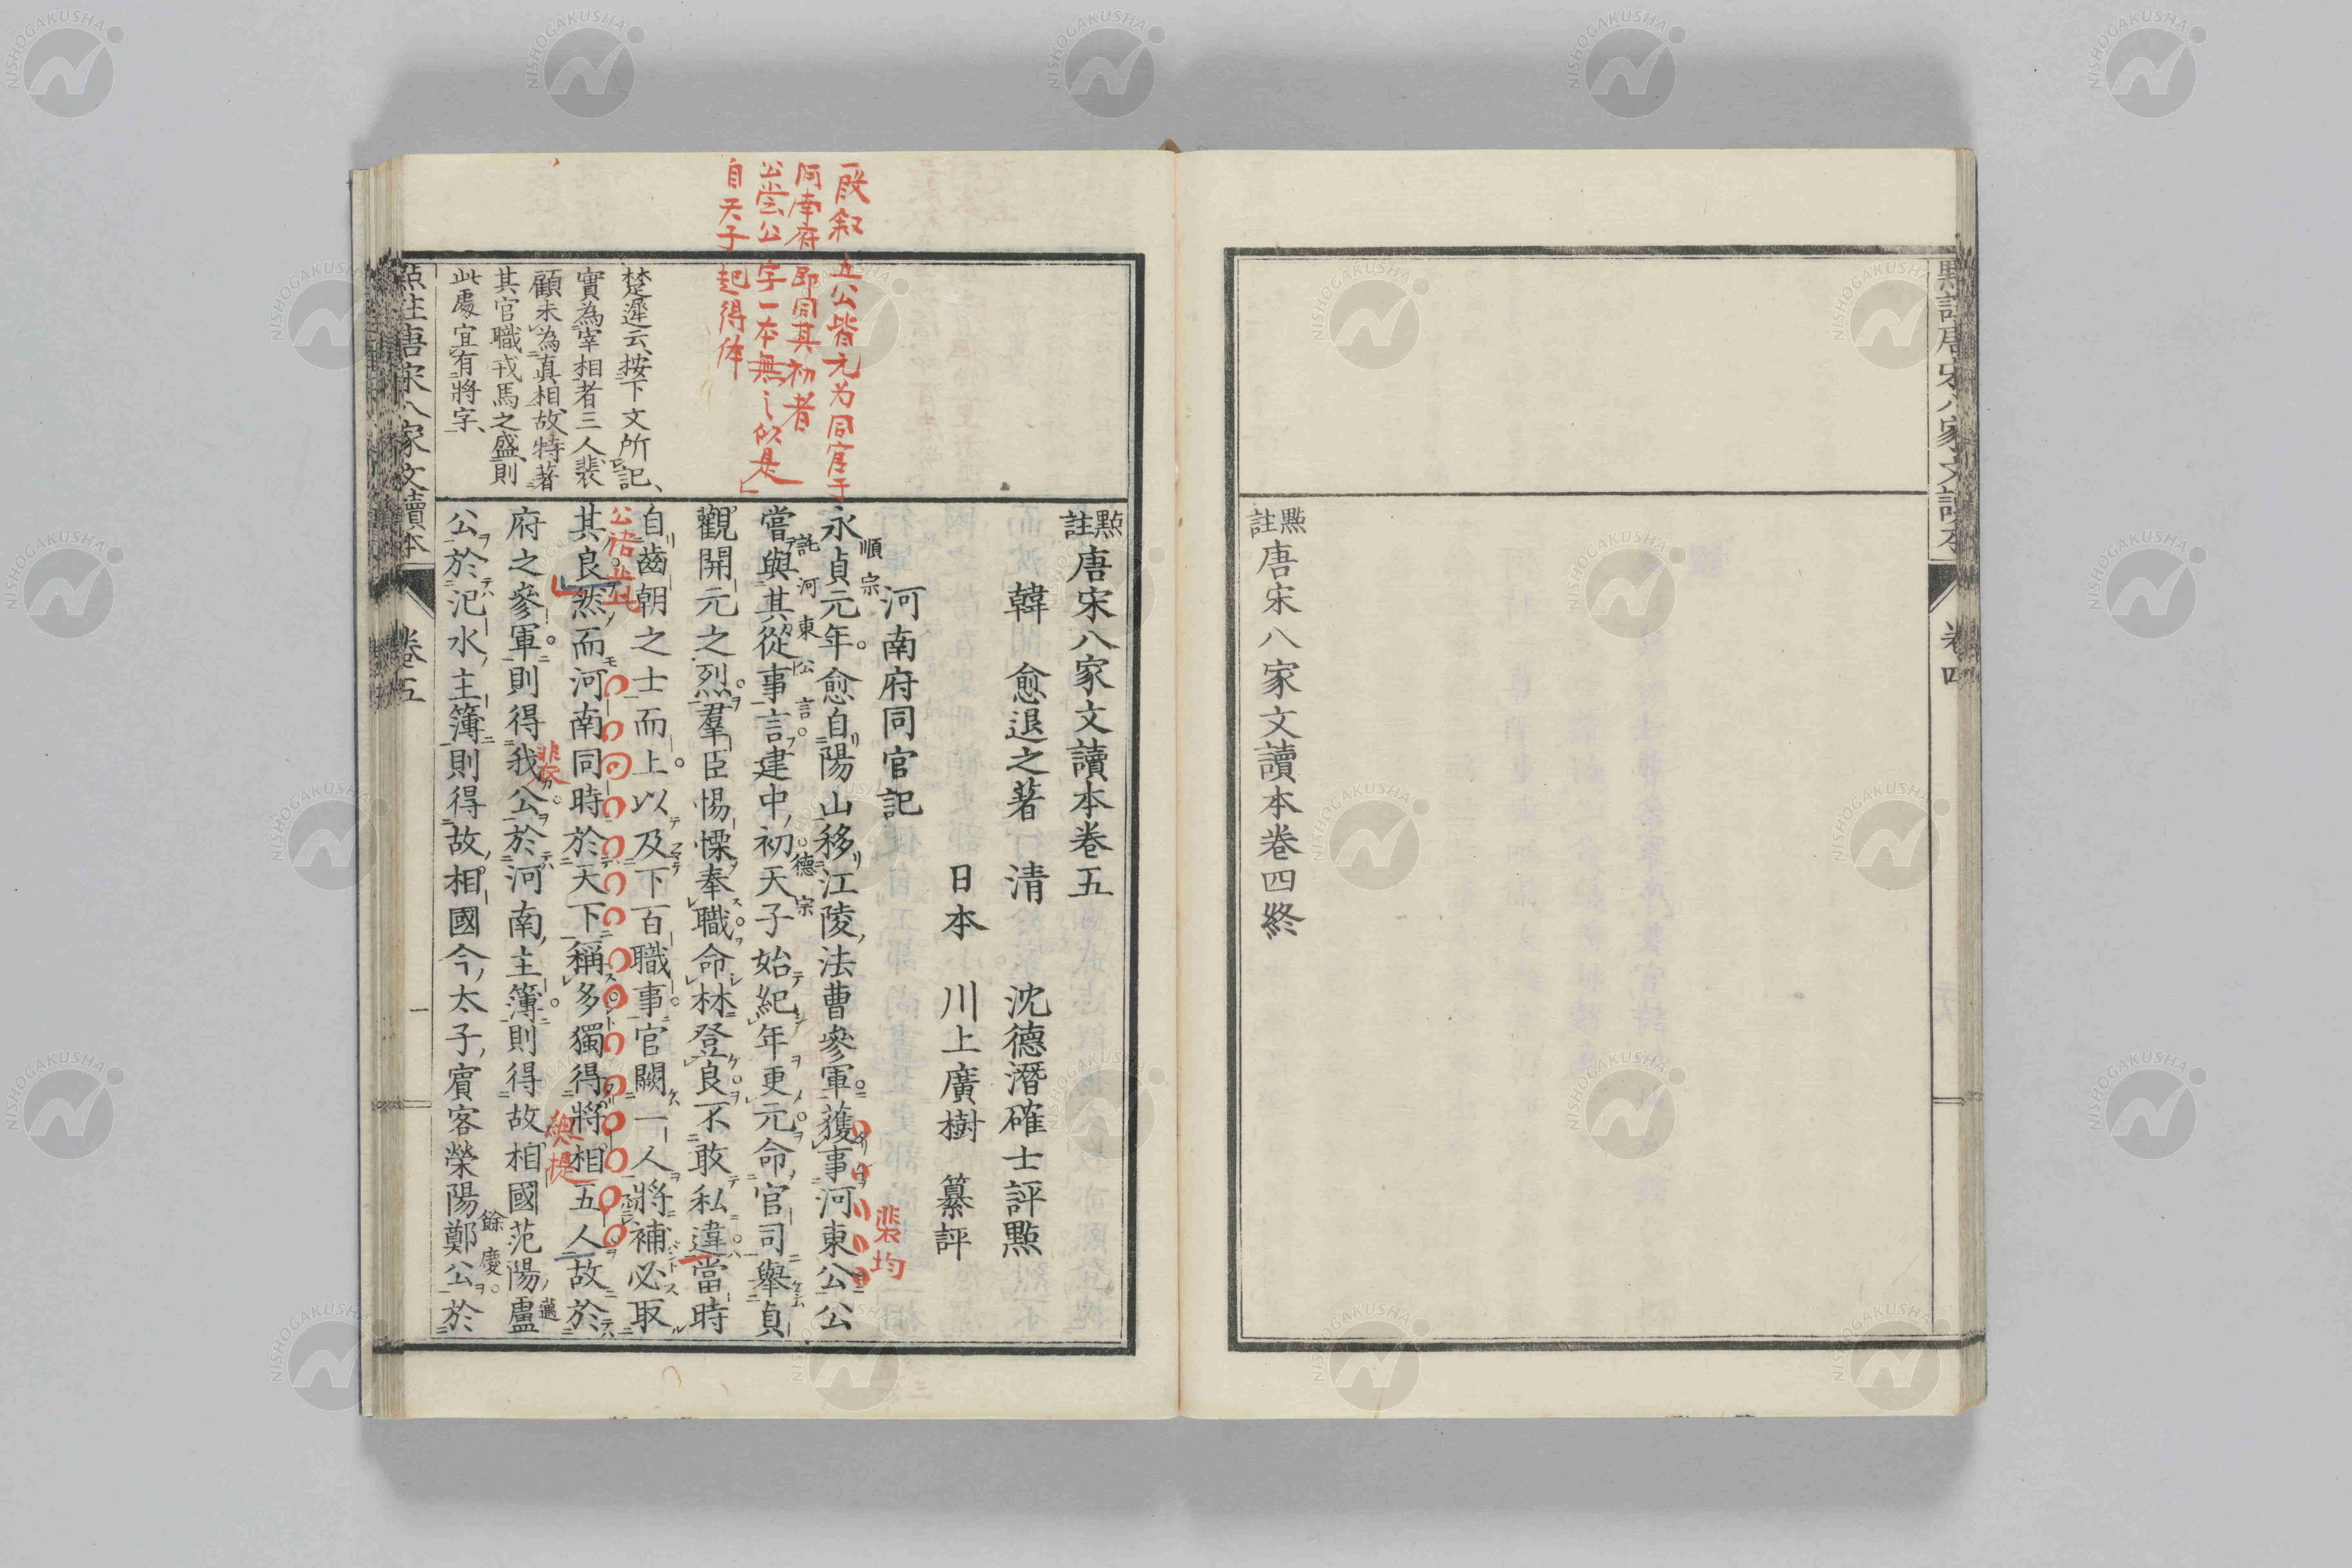 點註唐宋八家文讀本
卷四
點註唐宋八家文讀本卷四終
點註唐宋八家文讀本卷五
韓愈退之著 清 沈德潛確士評點
日本 川上廣樹 纂評
河南府同官記
永貞元年愈自陽山移江陵法曹參軍獲事河東公公
順宗
裴均
嘗與其從事言建中初天子始紀年更元命官司舉貞
託河東公言
德宗
觀開元之烈羣臣惕慄奉職命材登良不敢私違當時
自齒朝之士而上以及下百職事官闕一人將補必取
其良然而河南同時於天下稱多獨得將相五人故於
公語止此
總提
府之參軍則得我公於河南主簿則得故相國范陽盧
裴
邁
公於汜水主簿則得故相國今太子賓客榮陽鄭公於
餘慶
一段叙五公皆元为同官于
河南府即同其初者
公嘗公字一本無之似是
自天子起得体
楚遲云按下文所記
實為宰相者三人裴
顧未為真相故特著
其官職戎馬之盛則
此處宜有將字
點註唐宋八家文讀本
卷五
一
NISHOGAKUSHA